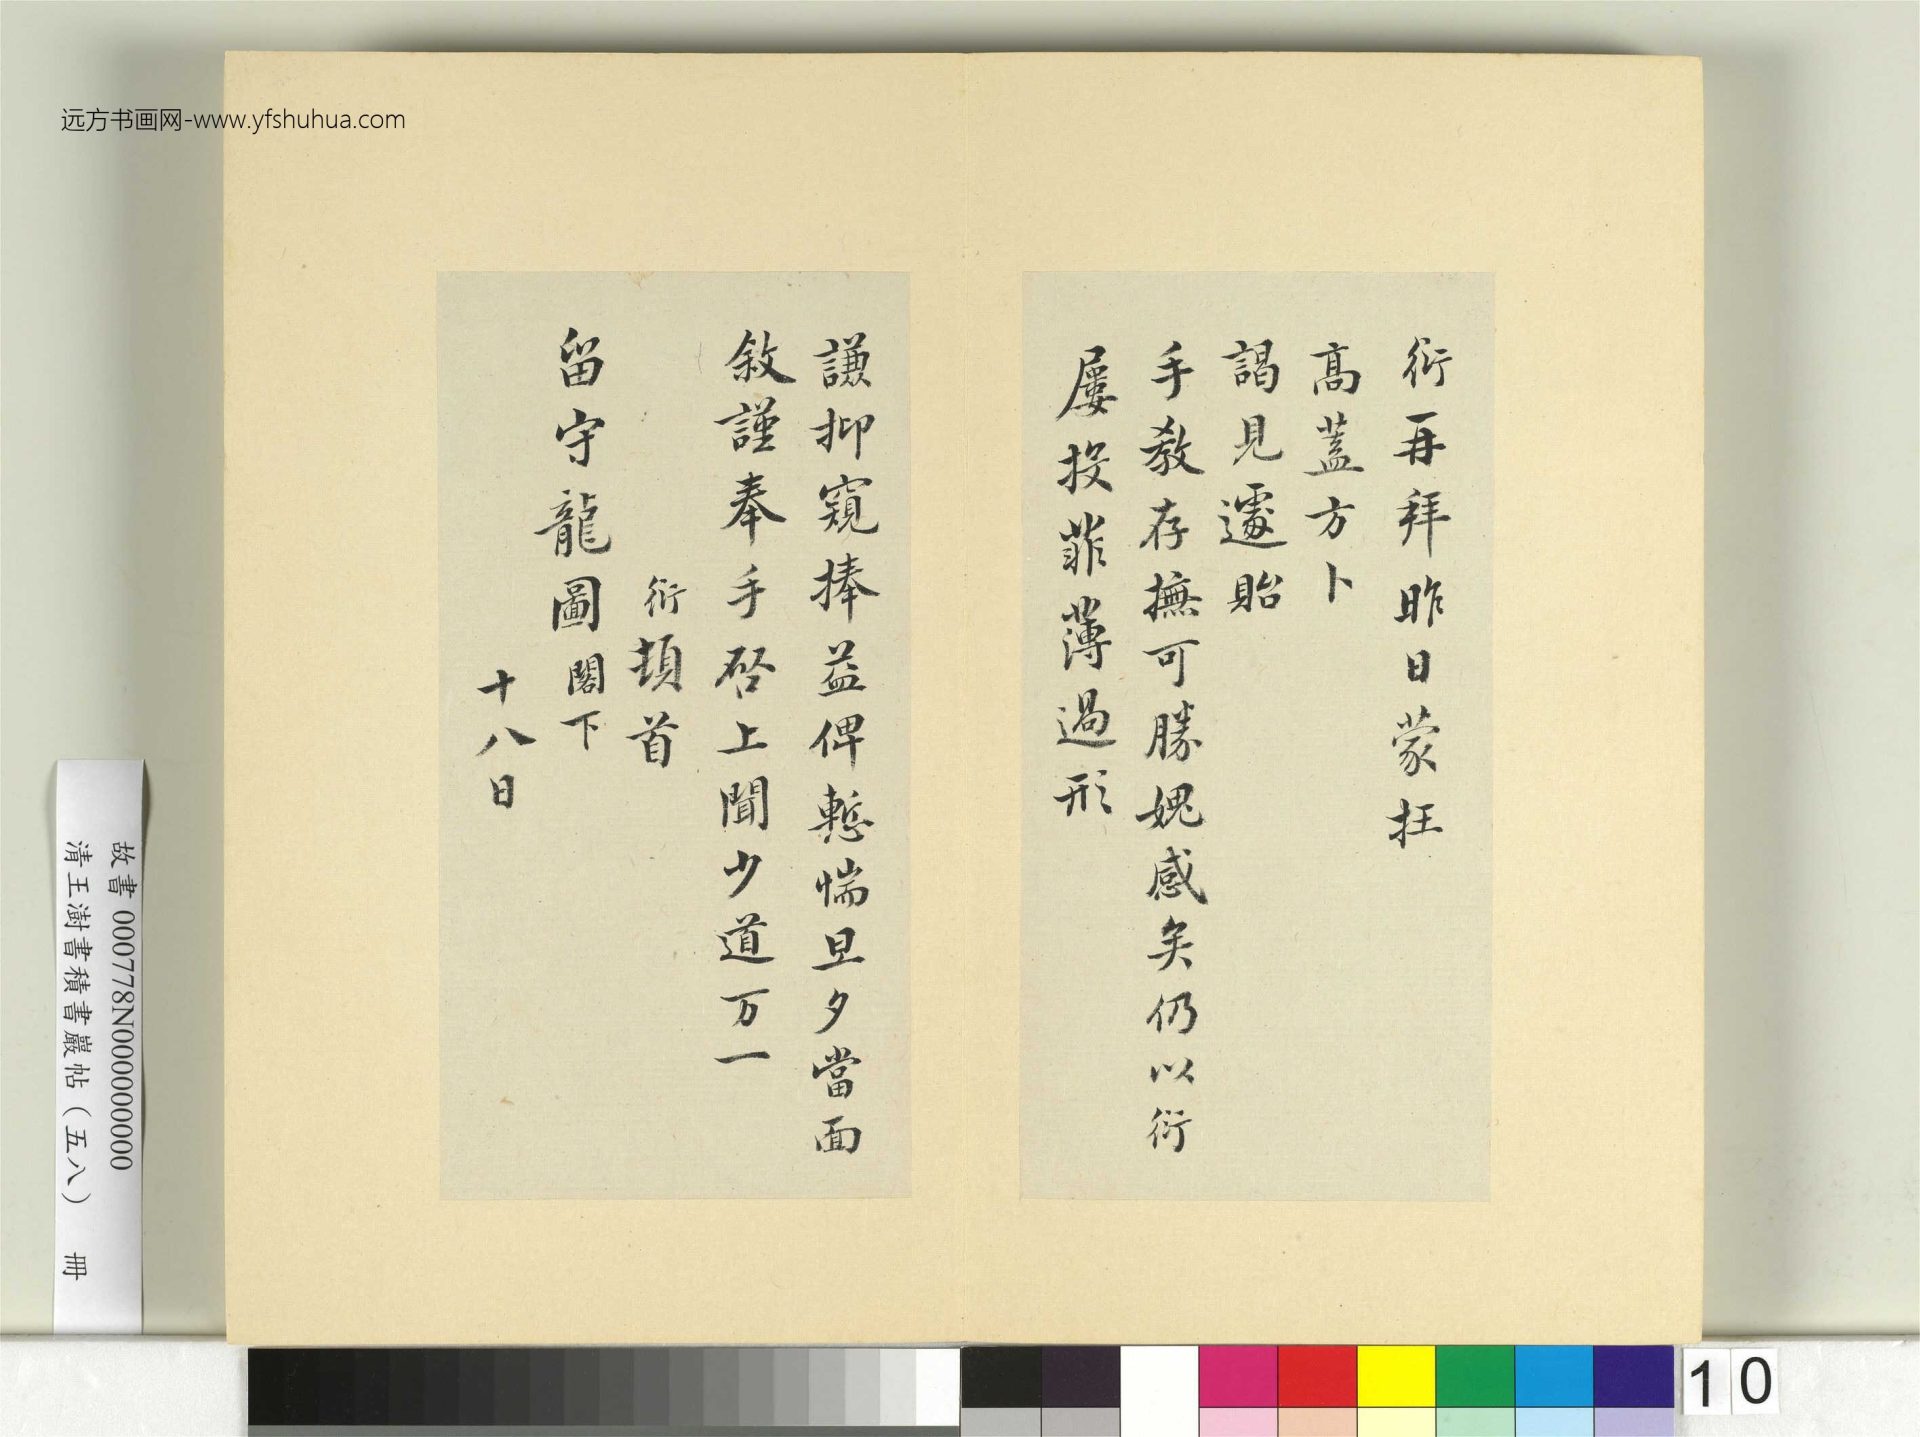 远方书画网-www.yfshuhua.com
衍再拜昨日蒙枉
高蓋方卜
謁見遽貽
手教存撫可勝媿感矣仍以衍
屢投菲薄過形
謙抑窺捧益俾慙惴旦夕當面
敘謹奉手啓上聞少道万一
衍頓首
留守龍圖閣下
十八日
故書 000778N000000000
清王澍書積書巖帖(五八) 冊
10